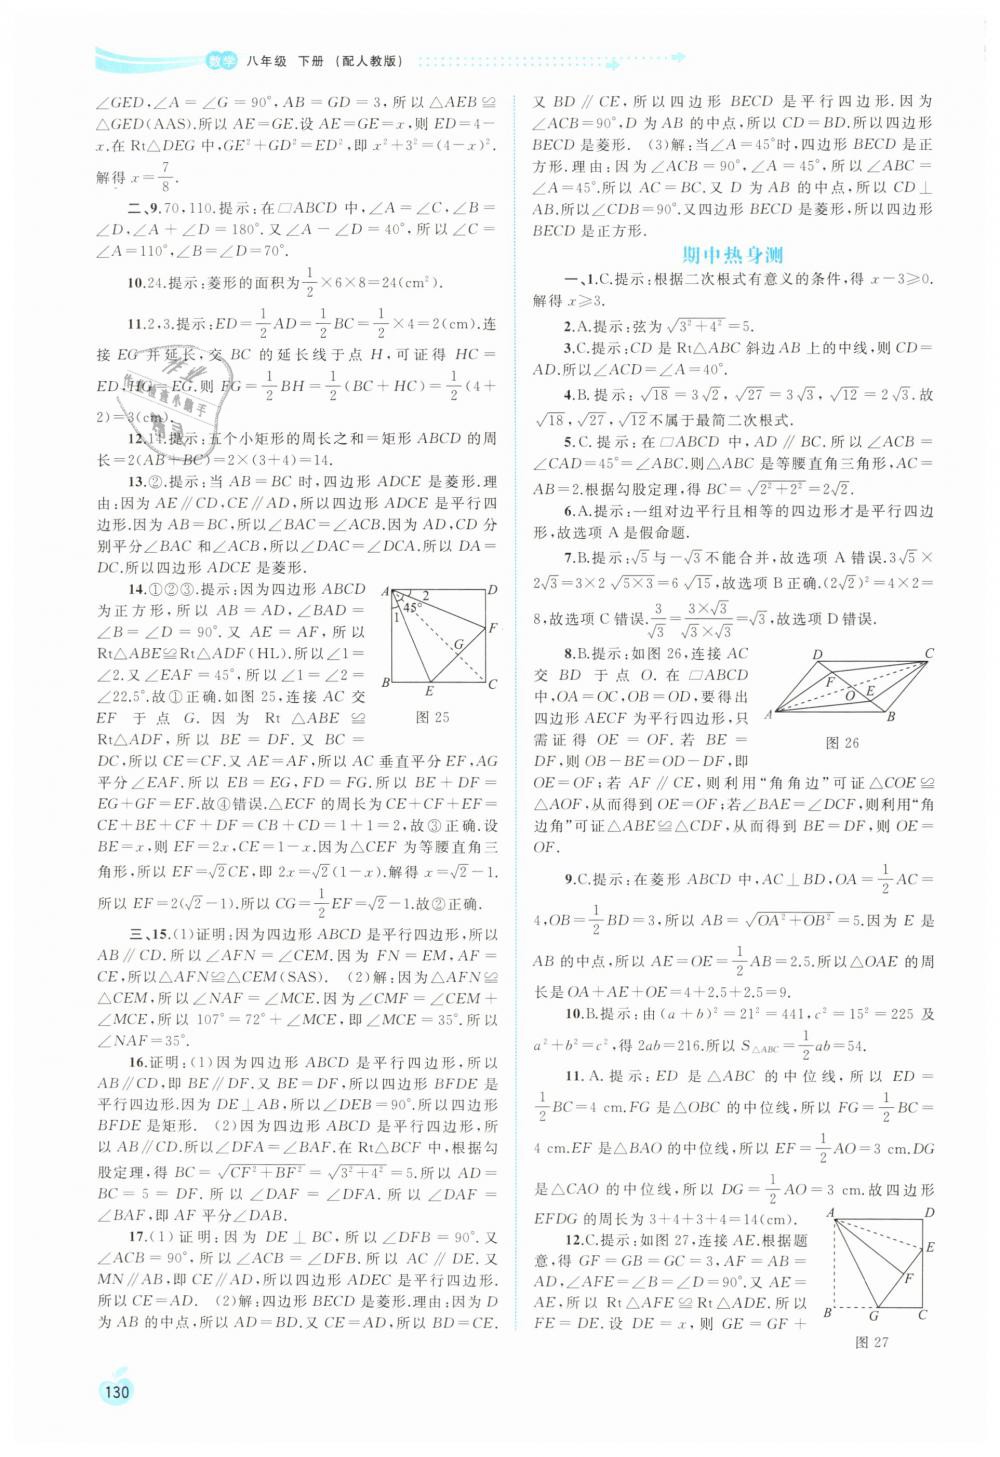 数学 八年级 下册 (配人教版)
∠GED,∠A=∠G=90°,AB=GD=3,所以△AEB≌
△GED(AAS).所以AE=GE.设AE=GE=x,则ED=4-
x.在Rt△DEG中,GE²+GD²=ED²,即x²+3²=(4-x)².
解得x=7/8.
二、9.70,110.提示:在□ABCD中,∠A=∠C,∠B=
∠D,∠A+∠D=180°.又∠A-∠D=40°,所以∠C=
∠A=110°,∠B=∠D=70°.
10.24.提示:菱形的面积为1/2×6×8=24(cm²).
11.2,3.提示:ED=1/2AD=1/2BC=1/2×4=2(cm).连
接EG并延长,交BC的延长线于点H,可证得HC=
ED,HG=EG.则FG=1/2BH=1/2(BC+HC)=1/2(4+
2)=3(cm).
12.14.提示:五个小矩形的周长之和=矩形ABCD的周
长=2(AB+BC)=2×(3+4)=14.
13.②.提示:当AB=BC时,四边形ADCE是菱形.理
由:因为AE∥CD,CE∥AD,所以四边形ADCE是平行四
边形.因为AB=BC,所以∠BAC=∠ACB.因为AD,CD分
别平分∠BAC和∠ACB,所以∠DAC=∠DCA.所以DA=
DC.所以四边形ADCE是菱形.
14.①②③.提示:因为四边形ABCD
为正方形,所以AB=AD,∠BAD=
∠B=∠D=90°.又AE=AF,所以
Rt△ABE≌Rt△ADF(HL).所以∠1=
∠2.又∠EAF=45°,所以∠1=∠2=
∠22.5°.故①正确.如图25,连接AC交
EF于点G.因为Rt△ABE≌
Rt△ADF,所以BE=DF.又BC=
DC,所以CE=CF.又AE=AF,所以AC垂直平分EF,AG
平分∠EAF.所以EB=EG,FD=FG.所以BE+DF=
EG+GF=EF.故④错误.△ECF的周长为CE+CF+EF=
CE+BE+CF+DF=CB+CD=1+1=2,故③正确.设
BE=x,则EF=2x,CE=1-x.因为△CEF为等腰直角三
角形,所以EF=√2CE,即2x=√2(1-x).解得x=√2-1.
所以EF=2(√2-1).所以CG=1/2EF=√2-1.故②正确.
A D 2 1 45° F G B E C
图25
三、15.(1)证明:因为四边形ABCD是平行四边形,所以
AB∥CD.所以∠AFN=∠CEM.因为FN=EM,AF=
CE,所以△AFN≌△CEM(SAS). (2)解:因为△AFN≌
△CEM,所以∠NAF=∠MCE.因为∠CMF=∠CEM+
∠MCE,所以107°=72°+∠MCE,即∠MCE=35°.所以
∠NAF=35°.
16.证明:(1)因为四边形ABCD是平行四边形,所以
AB∥CD,即BE∥DF.又BE=DF,所以四边形BFDE是
平行四边形.因为DE⊥AB,所以∠DEB=90°.所以四边形
BFDE是矩形. (2)因为四边形ABCD是平行四边形,所
以AB∥CD.所以∠DFA=∠BAF.在Rt△BCF中,根据勾
股定理,得BC=√(CF²+BF²)=√(3²+4²)=5.所以AD=
BC=5=DF.所以∠DAF=∠DFA.所以∠DAF=
∠BAF,即AF平分∠DAB.
17.(1)证明:因为DE⊥BC,所以∠DFB=90°.又
∠ACB=90°,所以∠ACB=∠DFB.所以AC∥DE.又
MN∥AB,即CE∥AD,所以四边形ADEC是平行四边形.
所以CE=AD. (2)解:四边形BECD是菱形.理由:因为D
为AB的中点,所以AD=BD.又CE=AD,所以BD=CE.
又BD∥CE,所以四边形BECD是平行四边形.因为
∠ACB=90°,D为AB的中点,所以CD=BD.所以四边形
BECD是菱形. (3)解:当∠A=45°时,四边形BECD是正
方形.理由:因为∠ACB=90°,∠A=45°,所以∠ABC=
∠A=45°.所以AC=BC.又D为AB的中点,所以CD⊥
AB.所以∠CDB=90°.又四边形BECD是菱形,所以四边形
BECD是正方形.
期中热身测
一、1.C.提示:根据二次根式有意义的条件,得x-3≥0.
解得x≥3.
2.A.提示:弦为√(3²+4²)=5.
3.C.提示:CD是Rt△ABC斜边AB上的中线,则CD=
AD.所以∠ACD=∠A=40°.
4.B.提示:√18=3√2,√27=3√3,√12=2√3.故
√18,√27,√12不属于最简二次根式.
5.C.提示:在□ABCD中,AD∥BC.所以∠ACB=
∠CAD=45°=∠ABC.则△ABC是等腰直角三角形,AC=
AB=2.根据勾股定理,得BC=√(2²+2²)=2√2.
6.A.提示:一组对边平行且相等的四边形才是平行四边
形,故选项A是假命题.
7.B.提示:√5与-√3不能合并,故选项A错误.3√5×
2√3=3×2√(5×3)=6√15,故选项B正确.(2√2)²=4×2=
8,故选项C错误.3/√3=(3×√3)/(√3×√3)=√3,故选项D错误.
8.B.提示:如图26,连接AC
交BD于点O.在□ABCD
中,OA=OC,OB=OD,要得出
四边形AECF为平行四边形,只
需证得OE=OF.若BE=
DF,则OB-BE=OD-DF,即
OE=OF;若AF∥CE,则利用“角角边”可证△COE≌
△AOF,从而得到OE=OF;若∠BAE=∠DCF,则利用“角
边角”可证△ABE≌△CDF,从而得到BE=DF,则OE=
OF.
D C F O E A B
图26
9.C.提示:在菱形ABCD中,AC⊥BD,OA=1/2AC=
4,OB=1/2BD=3,所以AB=√(OA²+OB²)=5.因为E是
AB的中点,所以AE=OE=1/2AB=2.5.所以△OAE的周
长是OA+AE+OE=4+2.5+2.5=9.
10.B.提示:由(a+b)²=21²=441,c²=15²=225及
a²+b²=c²,得2ab=216.所以S△ABC=1/2ab=54.
11.A.提示:ED是△ABC的中位线,所以ED=
1/2BC=4 cm.FG是△OBC的中位线,所以FG=1/2BC=
4 cm.EF是△BAO的中位线,所以EF=1/2AO=3 cm.DG
是△CAO的中位线,所以DG=1/2AO=3 cm.故四边形
EFDG的周长为3+4+3+4=14(cm).
12.C.提示:如图27,连接AE.根据题
意,得GF=GB=GC=3,AF=AB=
AD,∠AFE=∠B=∠D=90°.又AE=
AE,所以Rt△AFE≌Rt△ADE.所以
FE=DE.设DE=x,则GE=GF+
A D E F B G C
图27
130